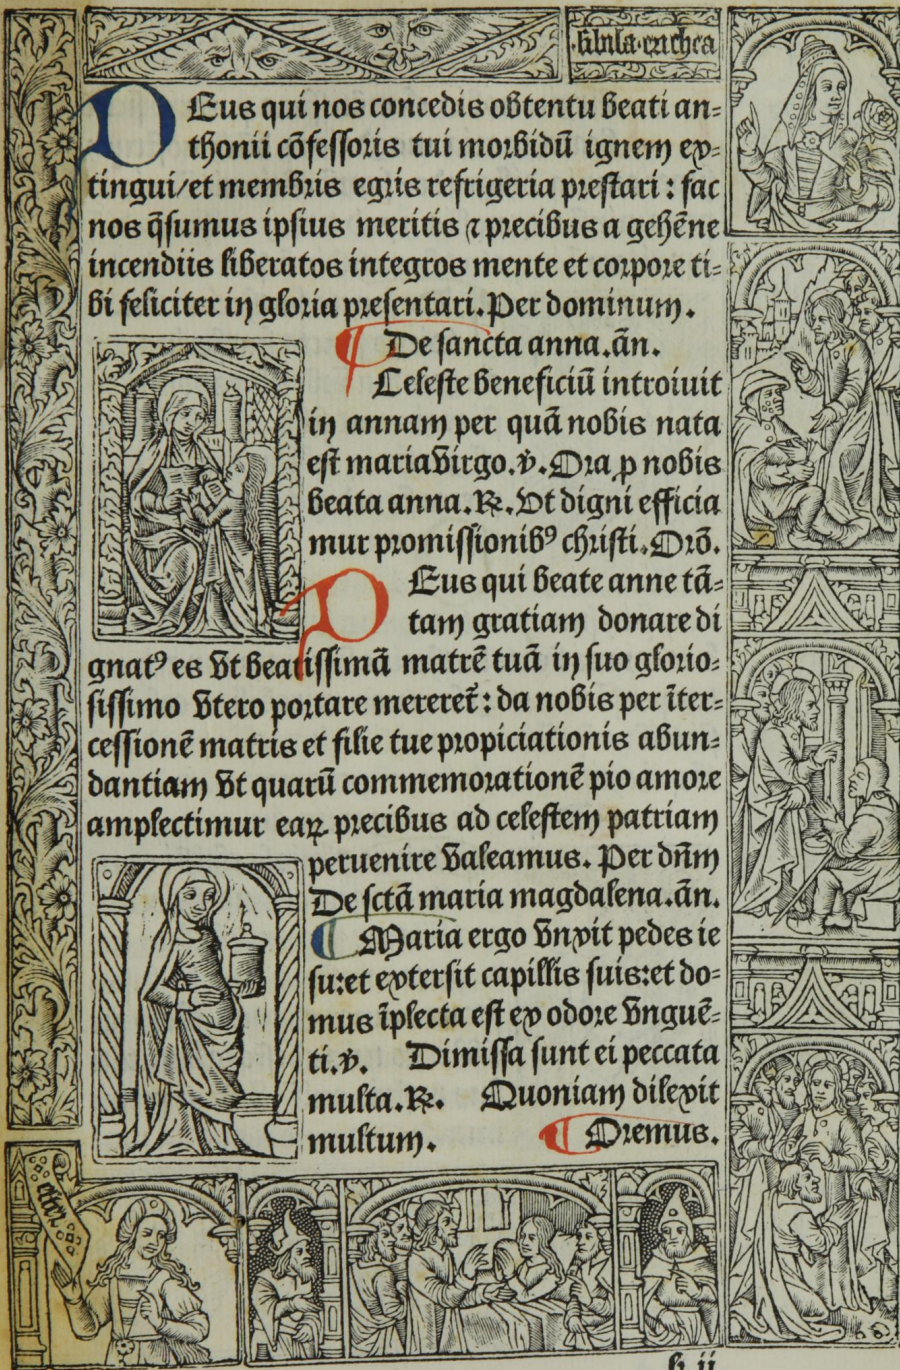 sibila erithea
DEus qui nos concedis obtentu beati an=
thonii cōfessoris tui morbidū ignem ex=
tingui/et membris egris refrigeria prestari: fac
nos q̄sumus ipsius meritis ⁊ precibus a gehēne
incendiis liberatos integros mente et corpore ti=
bi feliciter in gloria presentari. Per dominum.
¶ De sancta anna. añ.
Celeste beneficiū introiuit
in annam per quā nobis nata
est maria virgo. ℣. Ora ꝓ nobis
beata anna. ℟. Vt digni efficia
mur promissionibꝰ christi. Orō.
DEus qui beate anne tā=
tam gratiam donare di
gnatꝰ es vt beatissimā matrē tuā in suo glorio=
sissimo vtero portare mereret̄: da nobis per īter=
cessionē matris et filie tue propiciationis abun=
dantiam vt quarū commemorationē pio amore
amplectimur eaꝝ precibus ad celestem patriam
peruenire valeamus. Per dn̄m
De sctā maria magdalena. añ.
¶ Maria ergo vnxit pedes ie
su: et extersit capillis suis: et do=
mus īpleta est ex odore vnguē=
ti. ℣. Dimissa sunt ei peccata
multa. ℟. Quoniam dilexit
multum. ¶ Oremus.